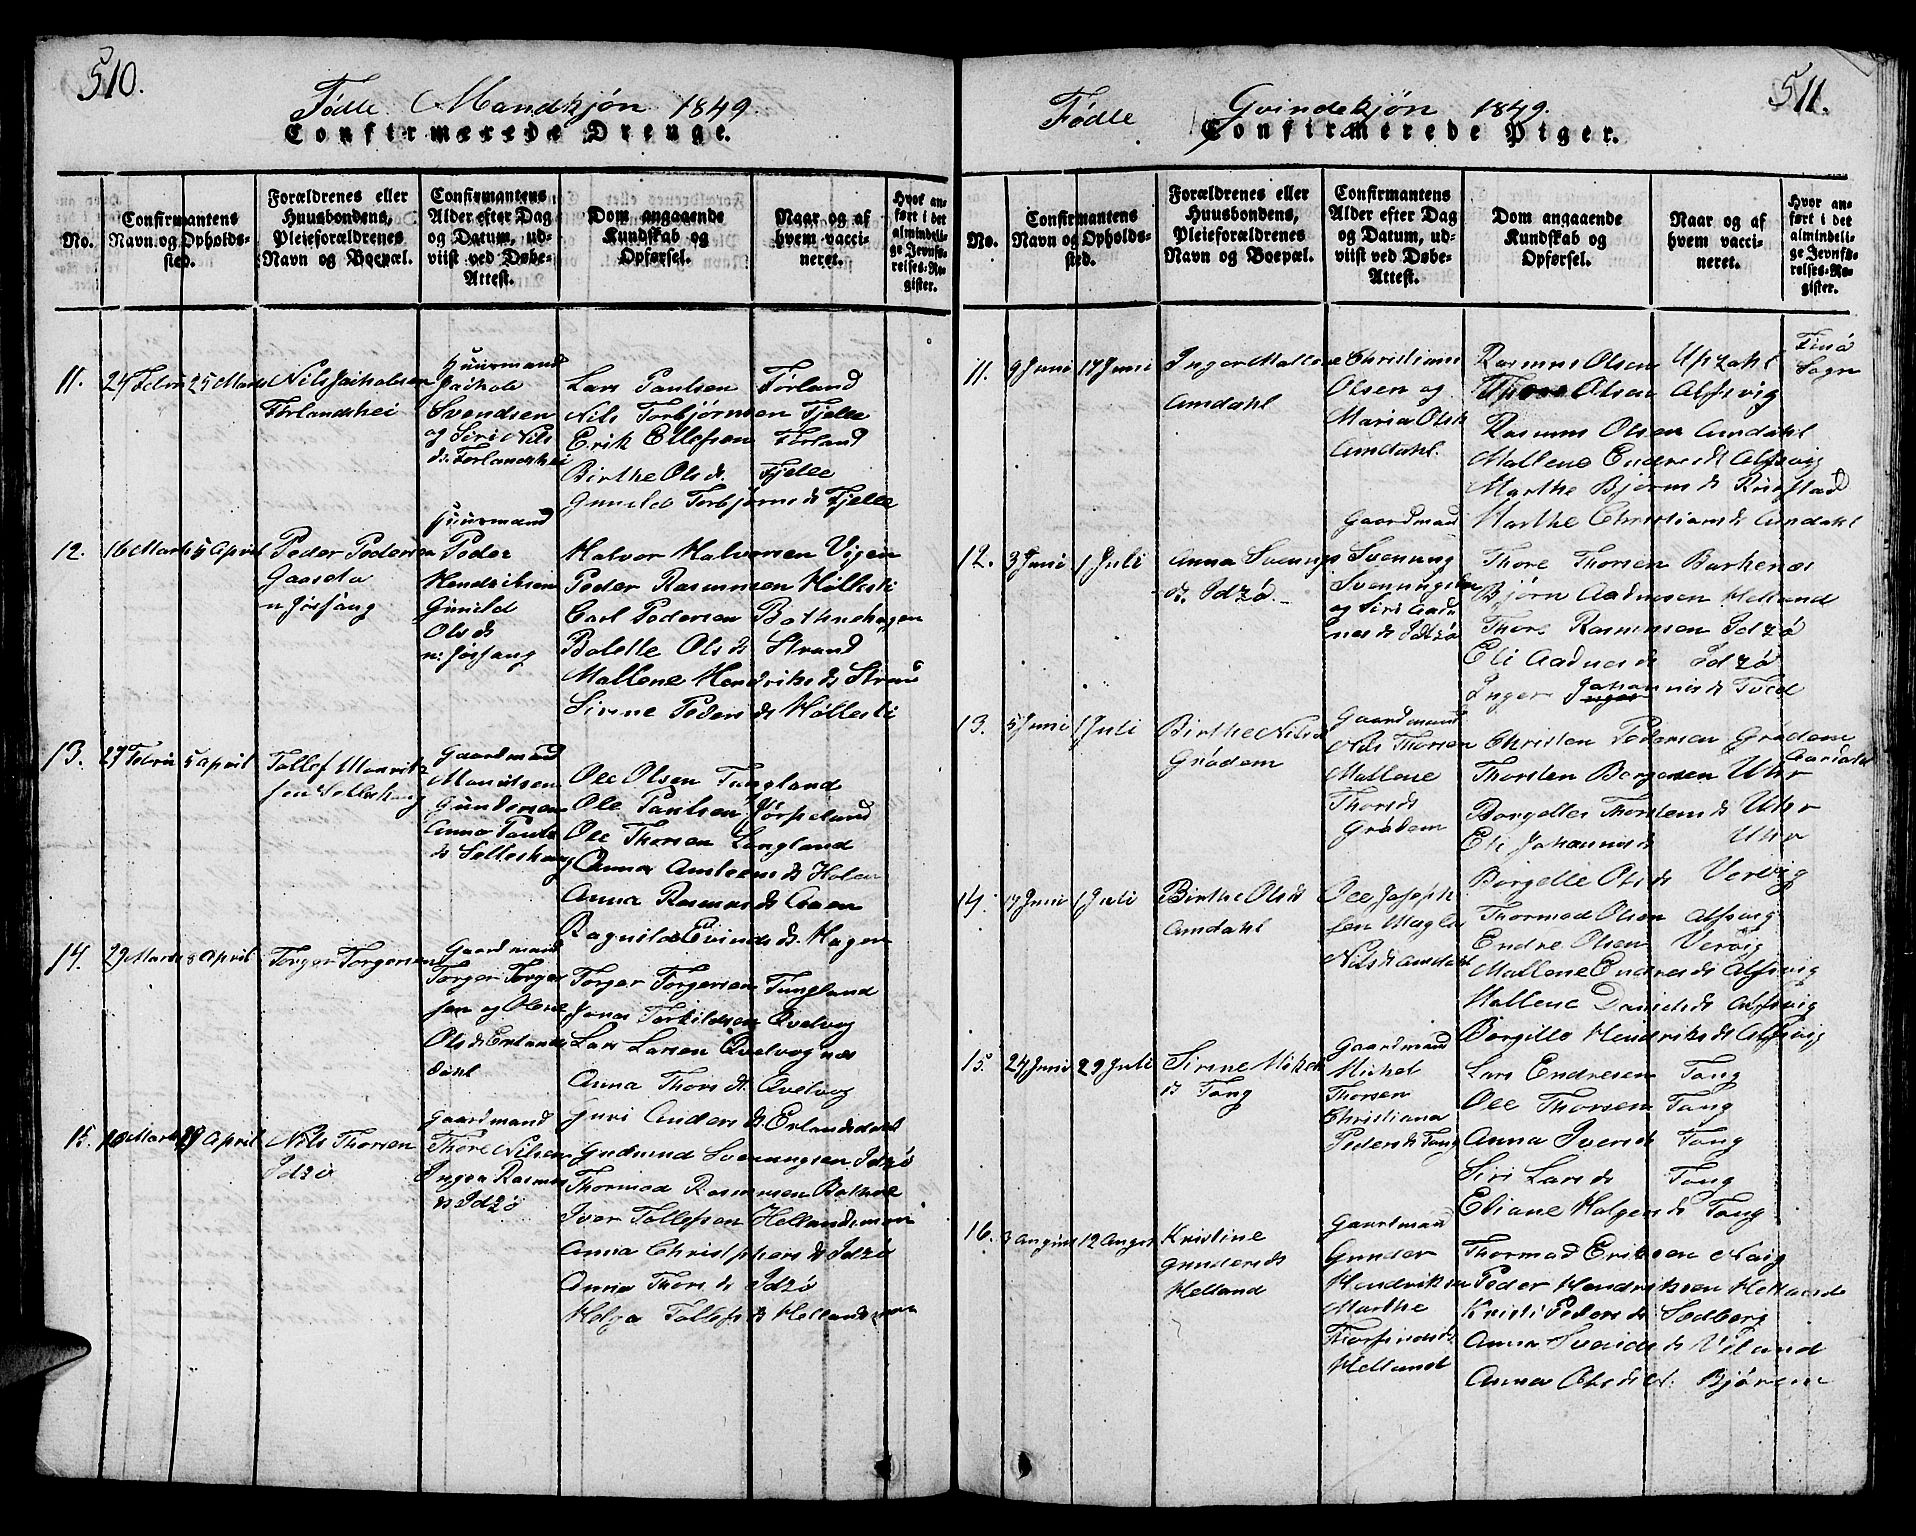 510.
Fødte Mandkjøn 1849
Confirmerede Drenge.
No.
Confirmantens
Navn og Opholds-
sted.
Forældrenes eller
Huusbondens,
Pleieforældrenes
Navn og Boepæl.
Confirmantens
Alder efter Dag
og Datum, ud-
viist ved Døbe-
Attest.
Dom angaaende
Kundskab og
Opførsel.
Naar og af
hvem vacci-
neret.
Hvor an-
ført i det
almindeli-
ge Jevnfø-
relses-Re-
gister.
11. 24 Febru 25 Marts
Førlandshei
Huusmand
Svendsen
og Siri Nils
dr Førlandshei
Lars Paulsen Førland
Nils Torbjørnsen Fjelle
Erik Ellefsen Førland
Birthe Olsdr. Fjelle
Gunild Torbjørnsdr Fjelle
12. 16 Marts 5 April Peder Pedersen
n Jøssang
Huusmand
Peder
Hendriksen
Gunild
Olsdr
n: Jøssang
Halvor Halvorsen Vigen
Peder Rasmusen Høllesli
Carl Pedersen Botnehagen
Bolette Olsdr Strand
Mallene Hendriksdr Strand
Sirene Pedersdr Høllesli
13. 27 Febru 5 April Tollef Mauritz
sen Selleshaug
Gaardmand
Mauritsen
Gundersen
Anna Pauls
dr Selleshaug
Ole Olsen Tungland
Ole Paulsen Jørpeland
Ole Thorsen Langland
Anna Amteensdr Holen
Anna Rasmusdr Aaen
Ragnild Evindsdr. Hagen
14. 29 Marts 8 April Torger Torgersen
Gaardmand
Torger Torger
sen og Olene
Olsdr Erlands
dahl
Torger Torgersen Tungland
Jonas Torkildsen Qvelvog
Lars Larsen Qvelvognæs
Anna Thorsdr. Qvelvog
Guri Andersdr Erlandsdal
15. 20 Marts 29 April Nils Thorsen
Idzø
Gaardmand
Thore Nilsen
Inger Rasmus
dr Idzø
Gudmund Svenungsen Idzø
Thormod Rasmusen Botne
Iver Tollefsen Hellandsmoen
Anna Christophersdr Idzø
Anna Thorsdr Idzø
Helga Tollefsdr Hellandsmoen
511.
Fødte Qvindekjøn 1849.
Confirmerede Piger.
No.
Confirmantens
Navn og Opholds-
sted.
Forældrenes eller
Huusbondens,
Pleieforældrenes
Navn og Boepæl.
Confirmantens
Alder efter Dag
og Datum, ud-
viist ved Døbe-
Attest.
Dom angaaende
Kundskab og
Opførsel.
Naar og af
hvem vacci-
neret.
Hvor an-
ført i det
almindeli-
ge Jevnfø-
relses-Re-
gister.
11. 9 Juni 17 Juni Inger Mallene
Amdahl
Christian
Olsen og
Maria Olsdr
Amdahl.
Rasmus Olsen Opzahl
Thore Olsen Alfsvig
Rasmus Olsen Amdahl
Mallene Endresdr Alfsvig
Marthe Bjørnsdr
Marthe Christiansdr Amdahl
Finø
Sogn
12. 3 Juni 1 Juli Anna Svenungs
dr. Idzø
Gaardmand
Svenung
Svenungsen
og Siri Aad
nesdr Idzø
Thore Thorsen Barkenæs
Bjørn Aadnesen Helland
Thore Rasmusen Idzø
Eli Aadnesdr Idzø
Inger Johannesdr Tved
13. 5 Juni 1 Juli Birthe Nilsdr
Grødem
Gaardmand
Nils Thorsen
Mallene
Thorsdr
Grødem
Christen Pedersen Grødem
Thorsten Borgersen Uhr
Borgelle Thorstensdr Uhr
Eli Johannesdr Uhr
Borgelle Olsdr Vervig
14. 17 Juni 1 Juli Birthe Olsdr
Amdahl
Ole Joseph
sen Magla
Nilsdr Amdahl
Thormod Olsen Alfsvig
Endre Olsen Vervig
Mallene Endresdr Alfsvig
Mallene Danielsdr Alfsvig
Borgille Hendriksdr Alfsvig
15. 24 Juni 29 Juli Sirene Michels
dr Tang
Gaardmand
Michel
Thorsen
Christiana
Pedersdr Tang
Lars Endresen Tang
Ole Thorsen Tang
Anna Iversdr Tang
Siri Larsdr Tang
Eliane Holgersdr Tang
16. 3 August 12 August Kristine
Gundersdr
Helland
Gaardmand
Gunder
Hendriksen
Marthe
Thorfinsdr
Helland
Thormod Eriksen Navig
Peder Hendriksen Helland
Kristi Pedersdr Sedberg
Anna Svendsdr Viland
Anna Olsdr